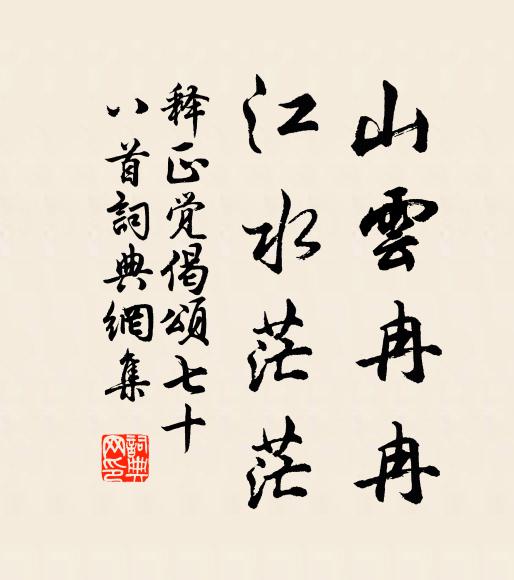 山雲冉冉
江水茫茫
释正觉偈頌七十
八首詞典網集
詞典
网印